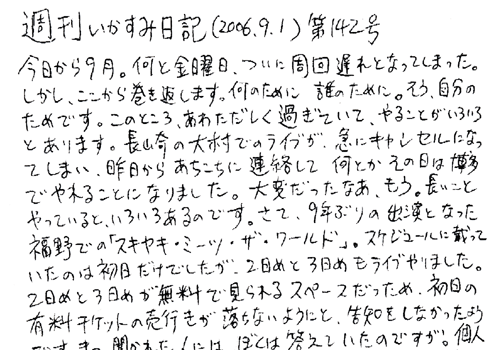 週刊いかすみ日記(2006.9.1)第142号
今日から9月。何と金曜日、ついに周回遅れとなってしまった。
しかし、ここから巻き返します。何のために 誰のために。そう、自分の
ためです。このところ、あわただしく過ぎていて、やることがいろいろ
とあります。長崎の大村でのライブが、急にキャンセルになっ
てしまい、昨日からあちこちに連絡して 何とかその日は博多
でやれることになりました。大変だったなあ、もう。長いこと
やっていると、いろいろあるのです。さて、9年ぶりの出演となった
福野での「スキヤキ・ミーツ・ザ・ワールド」。スケジュールに載って
いたのは初日だけでしたが、2日めと3日めもライブやりました。
2日めと3日めが無料で見られるスペースだったため、初日の
有料チケットの売行きが落ちないようにと、告知をしなかったよう
です。聞かれた人には、ぼくは答えていたのですが。個人